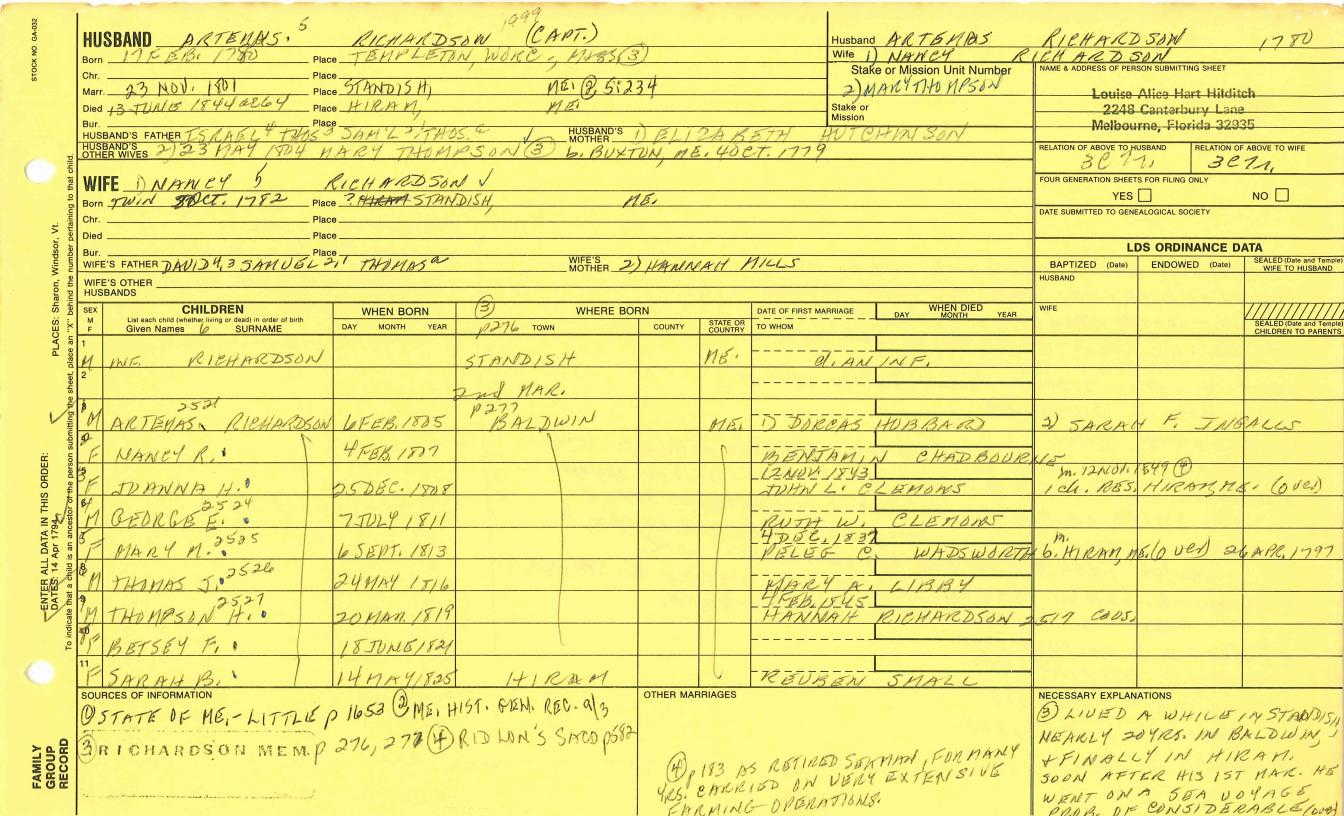 STOCK NO. GA-032
HUSBAND ARTEMAS. 5 RICHARDSON (CAPT.) 1999
Born 17 FEB. 1780 Place TEMPLETON, WORC., MASS (3)
Chr. Place
Marr. 23 NOV. 1801 Place STANDISH, ME. (2) 5:234
Died 13 JUNE 1844 ae 64 Place HIRAM, ME.
Bur. Place
HUSBAND'S FATHER ISRAEL 4 THOS 3 SAM'L 2,1 THOS. a HUSBAND'S MOTHER 1) ELIZABETH HUTCHINSON
HUSBAND'S OTHER WIVES 2) 23 MAY 1804 MARY THOMPSON (3) b. BUXTON, ME. 4 OCT. 1779
WIFE 1) NANCY 5 RICHARDSON √
Born TWIN 8 OCT. 1782 Place ? HIRAM STANDISH, ME.
Chr. Place
Died Place
Bur. Place
WIFE'S FATHER DAVID 4,3 SAMUEL 2,1 THOMAS a WIFE'S MOTHER 2) HANNAH MILLS
WIFE'S OTHER HUSBANDS
Husband ARTEMAS RICHARDSON 1780
Wife 1) NANCY RICHARDSON
Stake or Mission Unit Number
2) MARY THOMPSON
Stake or Mission
NAME & ADDRESS OF PERSON SUBMITTING SHEET
Louise Alice Hart Hilditch
2248 Canterbury Lane
Melbourne, Florida 32935
RELATION OF ABOVE TO HUSBAND RELATION OF ABOVE TO WIFE
FOUR GENERATION SHEETS FOR FILING ONLY
YES NO
DATE SUBMITTED TO GENEALOGICAL SOCIETY
LDS ORDINANCE DATA
BAPTIZED (Date) ENDOWED (Date) SEALED (Date and Temple) WIFE TO HUSBAND
HUSBAND
WIFE
SEALED (Date and Temple) CHILDREN TO PARENTS
SEX M F CHILDREN WHEN BORN (3) WHERE BORN DATE OF FIRST MARRIAGE WHEN DIED
List each child (whether living or dead) in order of birth
Given Names 6 SURNAME DAY MONTH YEAR p276 TOWN COUNTY STATE OR COUNTRY TO WHOM DAY MONTH YEAR
1 M INF. RICHARDSON STANDISH ME. d. AN INF.
2 2nd MAR.
p277
M ARTEMAS 2521 RICHARDSON 6 FEB. 1805 BALDWIN ME. 1) DORCAS HUBBARD 2) SARAH F. INGALLS
F NANCY R. 4 FEB. 1807 BENJAMIN CHADBOURNE
12 NOV. 1843 m. 12 NOV. 1849 (4)
F JOANNA H. 25 DEC. 1808 JOHN L. CLEMONS 1 ch. RES. HIRAM, ME. (over)
M GEORGE E. 2524 7 JULY 1811 RUTH W. CLEMONS
4 DEC. 1837 m.
F MARY M. 2525 6 SEPT. 1813 PELEG C. WADSWORTH b. HIRAM, ME. (over) 26 APR. 1797
M THOMAS J. 2526 24 MAY 1816 MARY A. LIBBY
4 FEB. 1845
M THOMPSON H. 2527 20 MAR. 1819 HANNAH RICHARDSON 2517 COUS.
10 F BETSEY F. 18 JUNE 1821
11 F SARAH B. 14 MAY 1825 HIRAM REUBEN SMALL
SOURCES OF INFORMATION
(1) STATE OF ME. - LITTLE p 1653 (2) ME. HIST. GEN. REC. 9/3
(3) RICHARDSON MEM. p 276, 277 (4) RIDLON'S SACO p582
OTHER MARRIAGES
(4) p 183 AS RETIRED SEAMAN, FOR MANY
YRS. CARRIED ON VERY EXTENSIVE
FARMING OPERATIONS.
NECESSARY EXPLANATIONS
(3) LIVED A WHILE IN STANDISH,
NEARLY 20 YRS. IN BALDWIN,
& FINALLY IN HIRAM.
SOON AFTER HIS 1ST MAR. HE
WENT ON A SEA VOYAGE
PROB. OF CONSIDERABLE (over)
FAMILY GROUP RECORD
ENTER ALL DATA IN THIS ORDER:
DATES: 14 Apr 1794
PLACES: Sharon, Windsor, Vt.
To indicate that a child is an ancestor of the person submitting the sheet, place an "X" behind the number pertaining to that child.